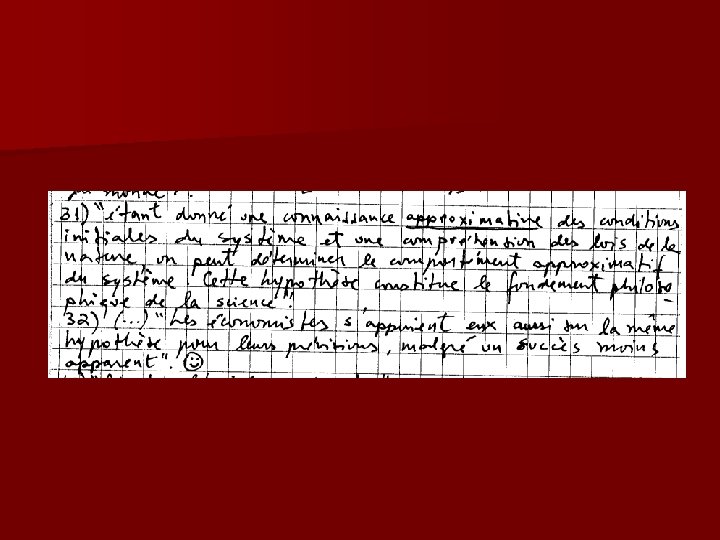 du monde".
31) "étant donné une connaissance approximative des conditions
initiales du système et une compréhension des lois de la
nature, on peut déterminer le comportement approximatif
du système. Cette hypothèse constitue le fondement philoso
phique de la science".
32) (...) "Les économistes s'appuient eux aussi sur la même
hypothèse pour leurs prévisions, malgré un succès moins
apparent". ☺